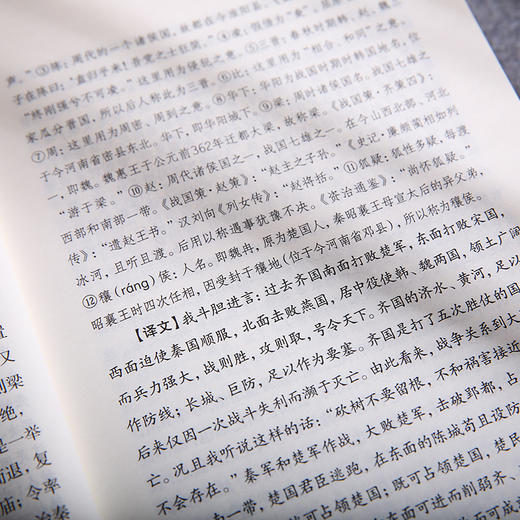 ③陈：周代的一个诸侯国，故都在今淮阳县。《
声。”
子在陈曰：‘盍归乎来！吾党之士狂简。’④凌：假借为“夌”
“终刚强兮不可凌。”这里用为侵犯之意。⑤三晋：春秋时期韩、赵、魏三
家瓜分晋国，所以后人称此为三晋。⑥比：这里用为“相合、和同”之意。
⑦周：这里用为周密、周到之意。⑧华下：华阳为战国时期韩国地名，位
于今河南省密县东北。华下，即华阳城下。⑨梁：周时诸侯国名。战国七雄之
一，即魏。魏惠王于公元前362年迁都大梁，故称梁。《战国策·齐策四》：
“游于梁。”⑩赵：周代诸侯国之一，战国七雄之一。在今山西北部、河北
西部和南部一带。《战国策·赵策》：“赵主之子孙。”《史记·廉颇蔺相如列
传》：“遗赵王书。”汉刘向《列女传》：“赵将括。”⑪狐疑：狐性多疑，每渡
冰河，且听且渡。后用以称遇事犹豫不决。《资治通鉴》：“尚怀狐疑。”
⑫穰（ráng）侯：人名。即魏冉，原为楚国人，秦昭襄王母宣太后的异父弟，
昭襄王时四次任相，因受封于穰地（位于今河南省邓县），所以称为穰侯。
【译文】我斗胆进言：过去齐国南面打败楚军，东面打败宋国，
西面迫使秦国顺服，北面击败燕国，居中役使韩、魏两国，领土广阔
而兵力强大，战则胜，攻则取，号令天下。齐国的济水、黄河，足以
作防线；长城、巨防，足以作为要塞。齐国是打了五次胜仗的国
后来仅因一次战斗失利而濒于灭亡。由此看来，战争关系到大
亡。况且我听说这样的话：“砍树不要留根，不和祸害接近
不会存在。”秦军和楚军作战，大败楚军，击破郢都，占
南一带，楚国君臣逃跑，在东面的陈城苟且设防
可占领楚国；既可占领楚国，楚民
东面可进而削弱齐、
又
则梁
绝，
是一举
而退，复
庙；令率